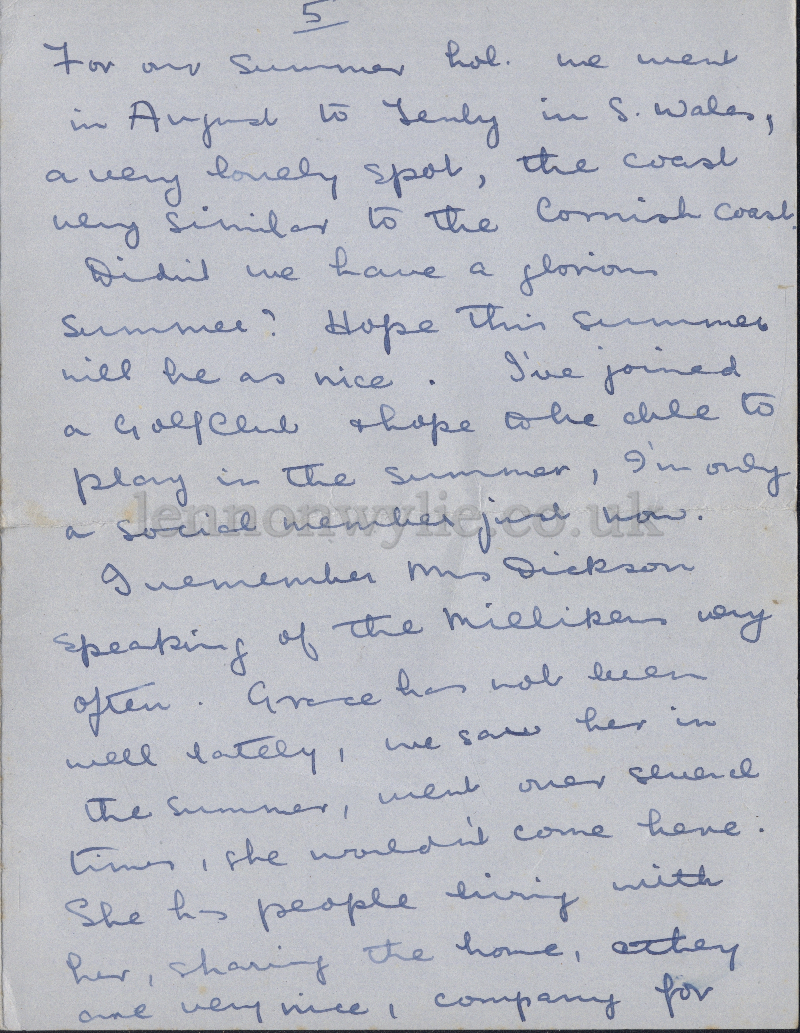 5
For our Summer hol. we went
in August to Tenby in S. Wales,
a very lovely spot, the coast
very similar to the Cornish coast.
Didn't we have a glorious
summer? Hope this summer
will be as nice. I've joined
a Golf Club & hope to be able to
play in the summer, I'm only
lennonwylie.co.uk
a social member just now.
I remember Mrs Dickson
speaking of the Millikens very
often. Grace has not been
well lately, we saw her in
the summer, went over several
times, she wouldn't come here.
She has people living with
her, sharing the home, & they
are very nice, company for